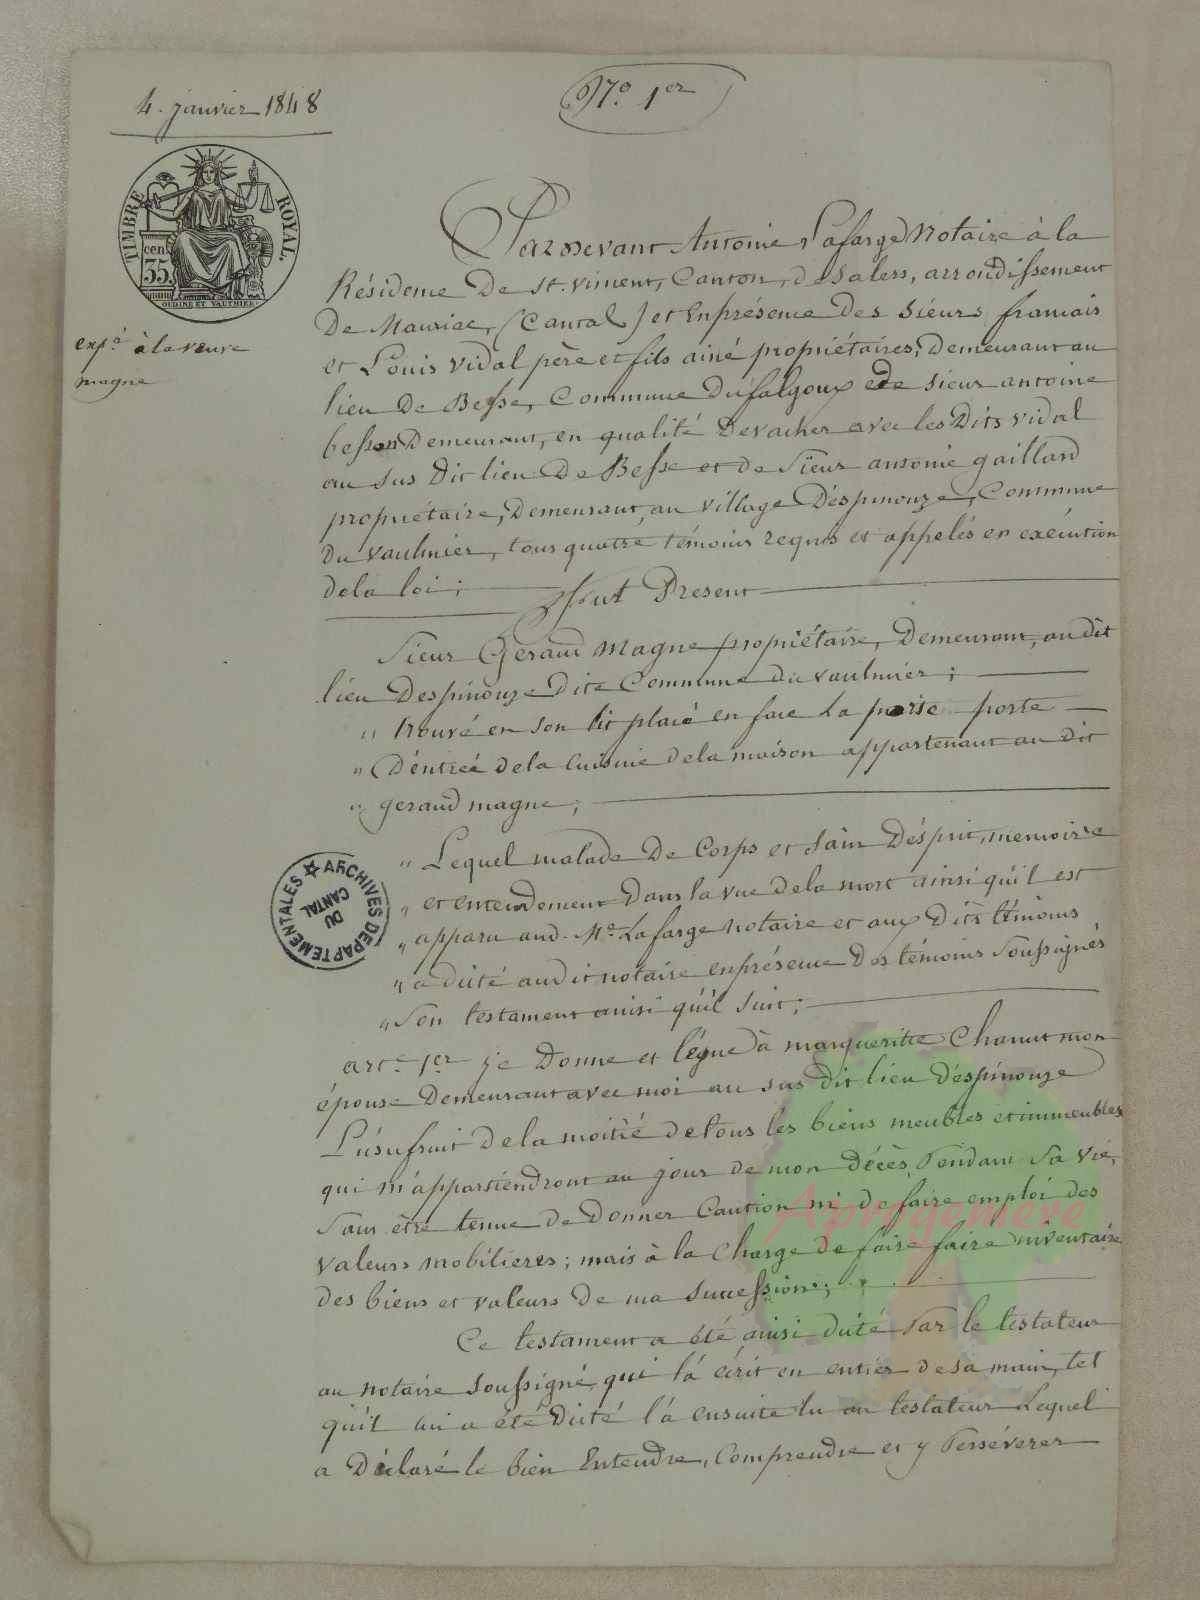 4. janvier 1848
No. 1er
TIMBRE ROYAL.
cen.
35.
OUDINE ET VAUTHIER
expé à la veuve
magne
Pardevant Antoine Lafarge Notaire à la
Résidence De st. vincent, Canton, de salers, arrondissement
De Mauriac, (Cantal) et Enprésence des sieurs francais
et Louis vidal père et fils ainé propriétaires, Demeurant au
lieu De Besse, Commune du falgoux et de sieur antoine
besson Demeurant, en qualité De vacher avec les Dits vidal
au sus Dit lieu De Besse et de sieur antonie gaillard
propriétaire, Demeurant, au village D'éspinouze, Commune
Du vaulmier, tous quatre témoins requis et appelés en exécution
de la loi; Fut Present
Sieur Geraud Magne propriétaire, Demeurant, au dit
lieu Despinouze Dite Commune du vaulmier;
" trouvé en son lit placé en face la porte porte
" D'éntrée de la Cuisine de la maison appartenant au dit
" geraud magne;
" Lequel malade De Corps et sain D'ésprit, memoire
" et entendement Dans la vue de la mort ainsi qu'il est
" apparu aud. Me. Lafarge notaire et aux Dits témoins
" a dicté audit notaire enprésence Des témoins soussignés
" Son testament ainsi qu'il suit;
art. 1er je Donne et légue à margueritte Chanut mon
épouse Demeurant avec moi au sus dit lieu d'éspinouze
L'úsufruit de la moitié de tous les biens meubles et immeubles
qui m'appartiendront au jour de mon décès, Pendant sa vie,
sans être tenue de donner Caution ni de faire emploi des
valeurs mobilieres; mais à la Charge de faire faire inventaire
des biens et valeurs de ma succession;
Ce testament a été ainsi dicté Par le testateur
au notaire soussigné qui l'á écrit en entier de sa main, tel
qu'il lui a été Dicté l'á ensuite lu au testateur Lequel
a Déclaré le bien Entendre, Comprendre et y Persévérer
ARCHIVES DEPARTEMENTALES
DU
CANTAL
Aprogemere